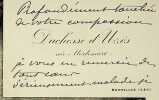 Profondément touchée
de votre compassion
Duchesse d'Uzès
née Mortemart
je vous en remercie de
tout cœur